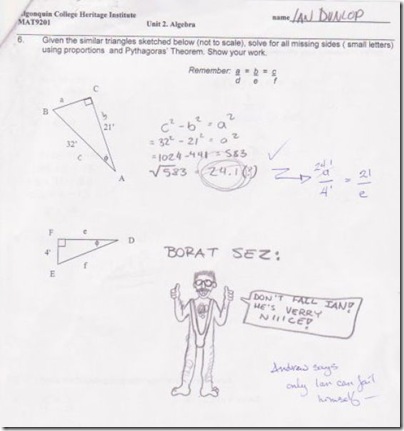 lgonquin College Heritage Institute
MAT9201
Unit 2. Algebra
name IAN DUNLOP
6. Given the similar triangles sketched below (not to scale), solve for all missing sides ( small letters)
using proportions and Pythagoras' Theorem. Show your work.
Remember: a = b = c
d e f
C
a
B
b
21'
32'
c
φ
A
c² - b² = a²
= 32² - 21² = a²
= 1024 - 441 = 583
√583 = 24.1 (?)
24.1
a = 21
4' e
F e D
4' φ
f
E
BORAT SEZ:
DON'T FAIL IAN!
HE'S VERRY
NIIICE!
Andrew says
only Ian can fail
himself —